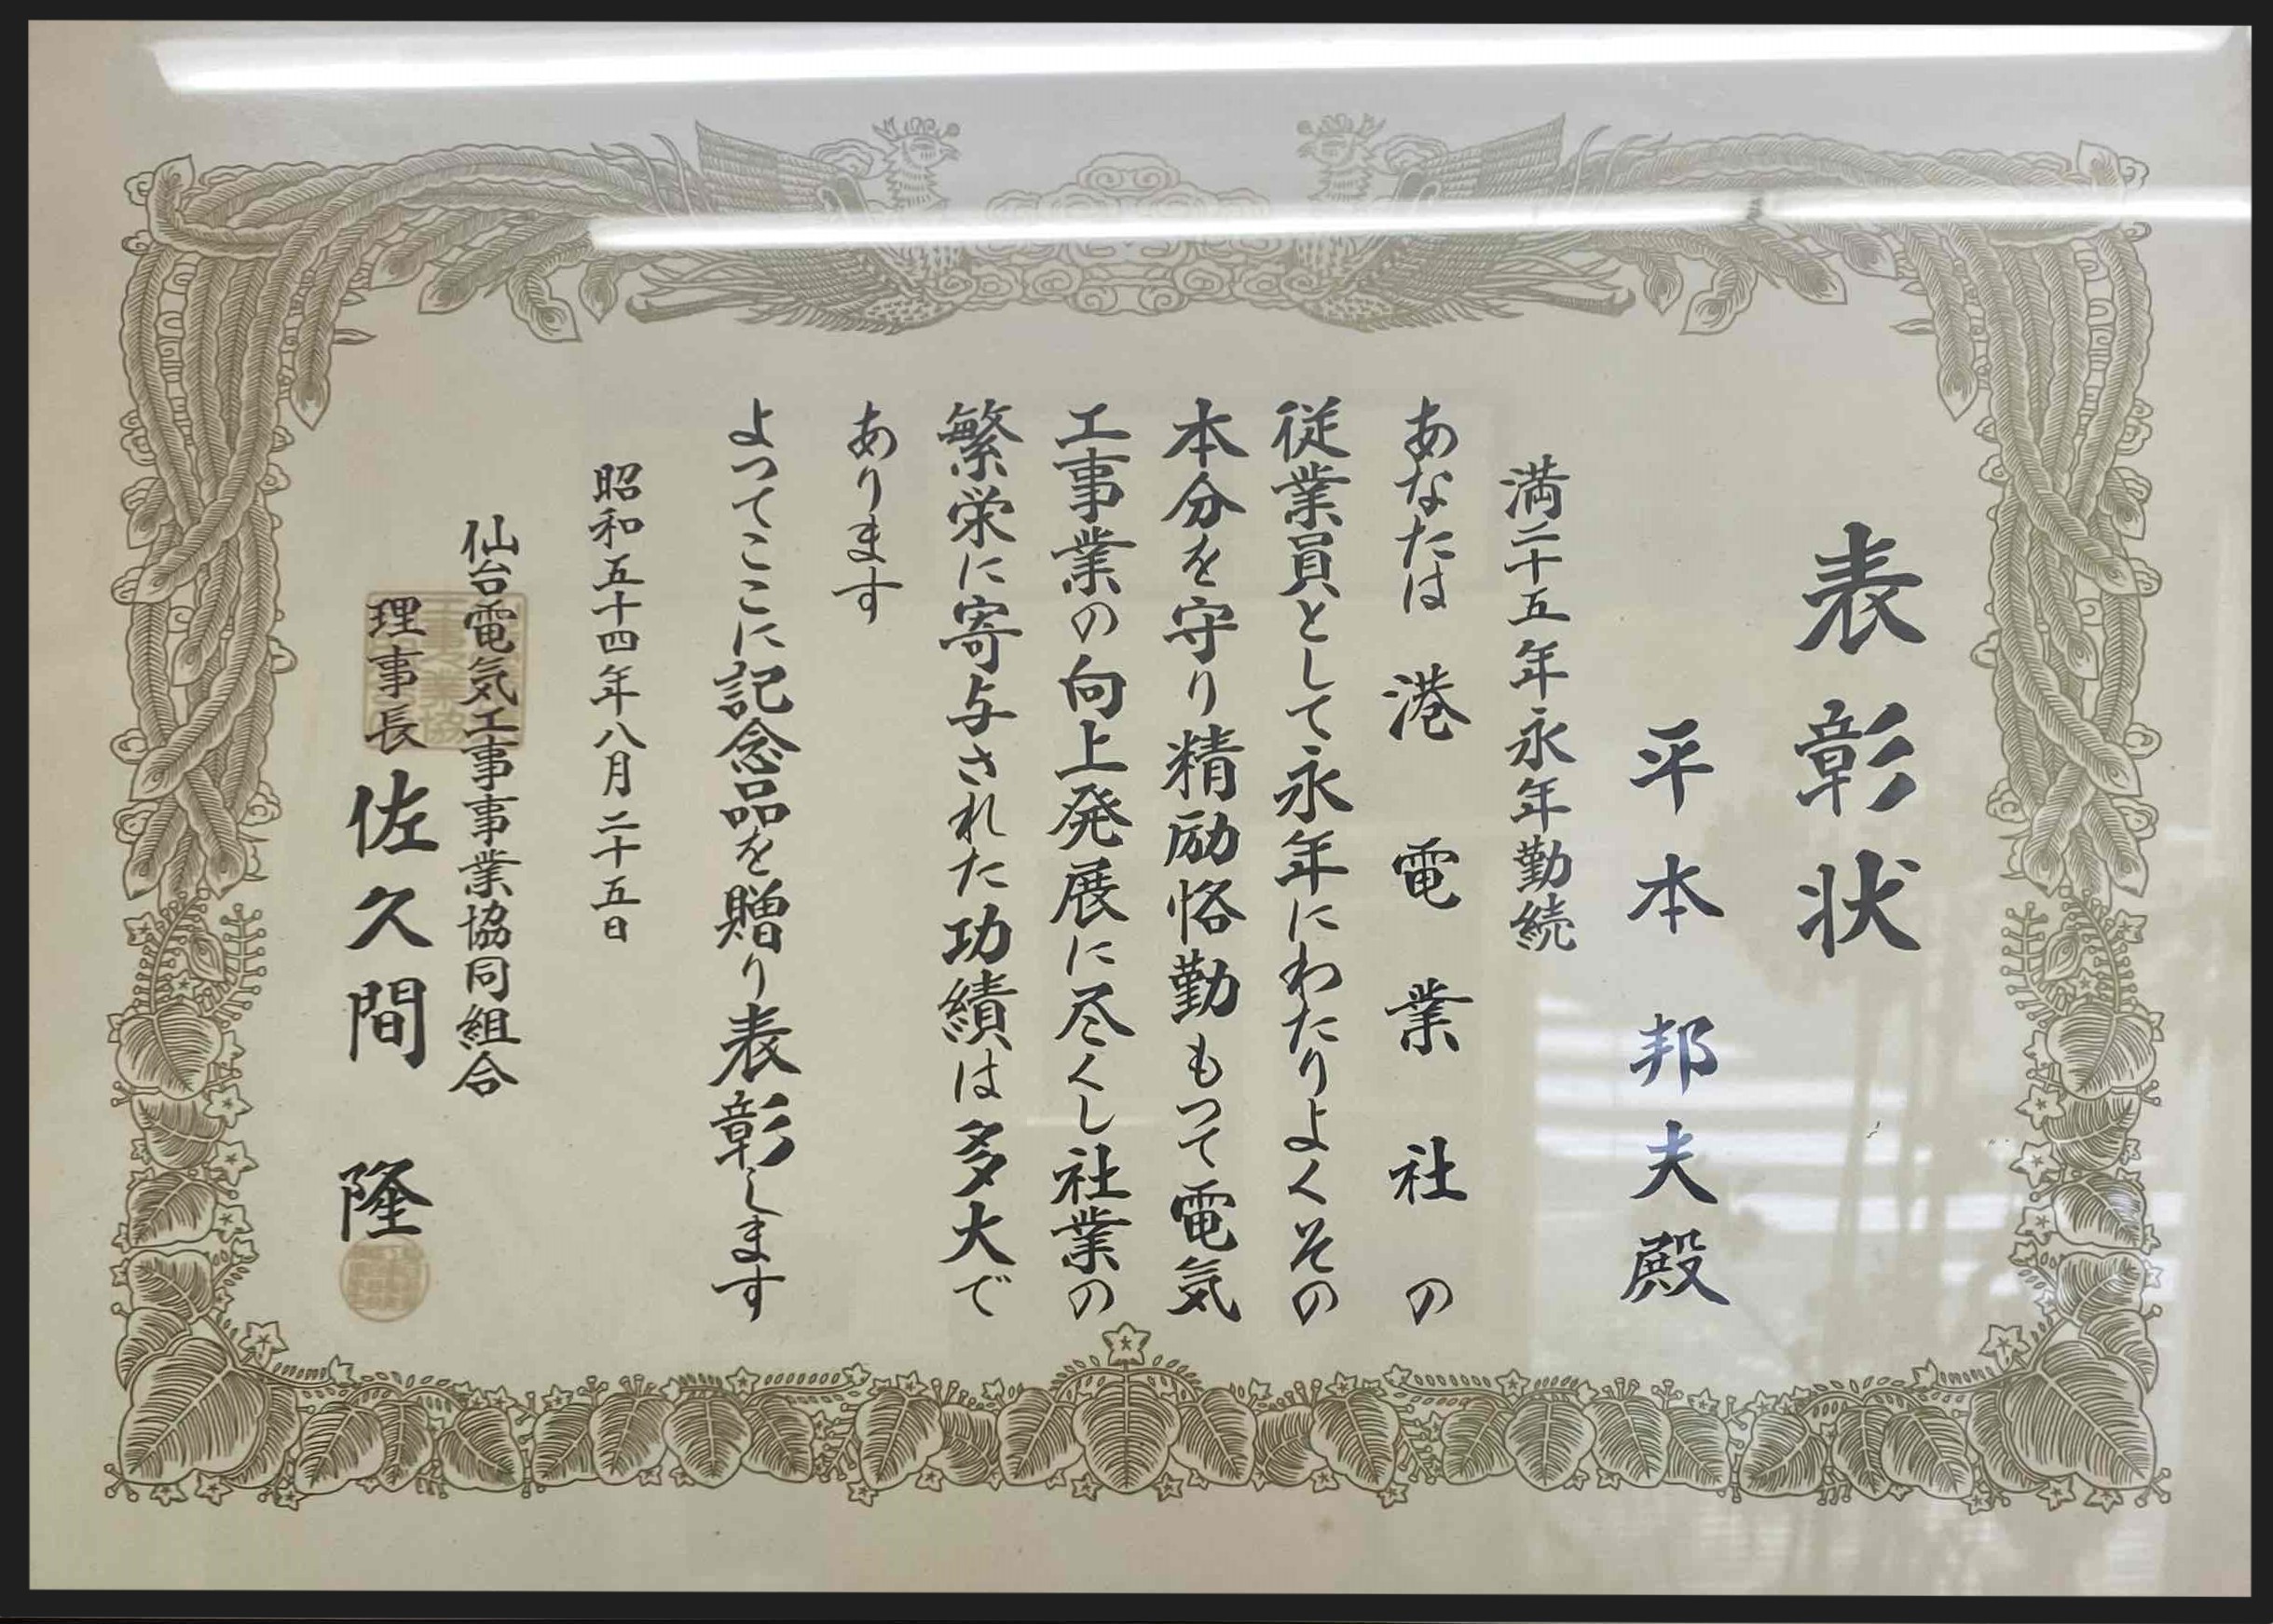 表彰状
平本邦夫殿
満二十五年永年勤続
あなたは港電業社の
従業員として永年にわたりよくその
本分を守り精励恪勤もつて電気
工事業の向上発展に尽くし社業の
繁栄に寄与された功績は多大で
あります
よつてここに記念品を贈り表彰します
昭和五十四年八月二十五日
仙台電気工事事業協同組合
理事長 佐久間 隆